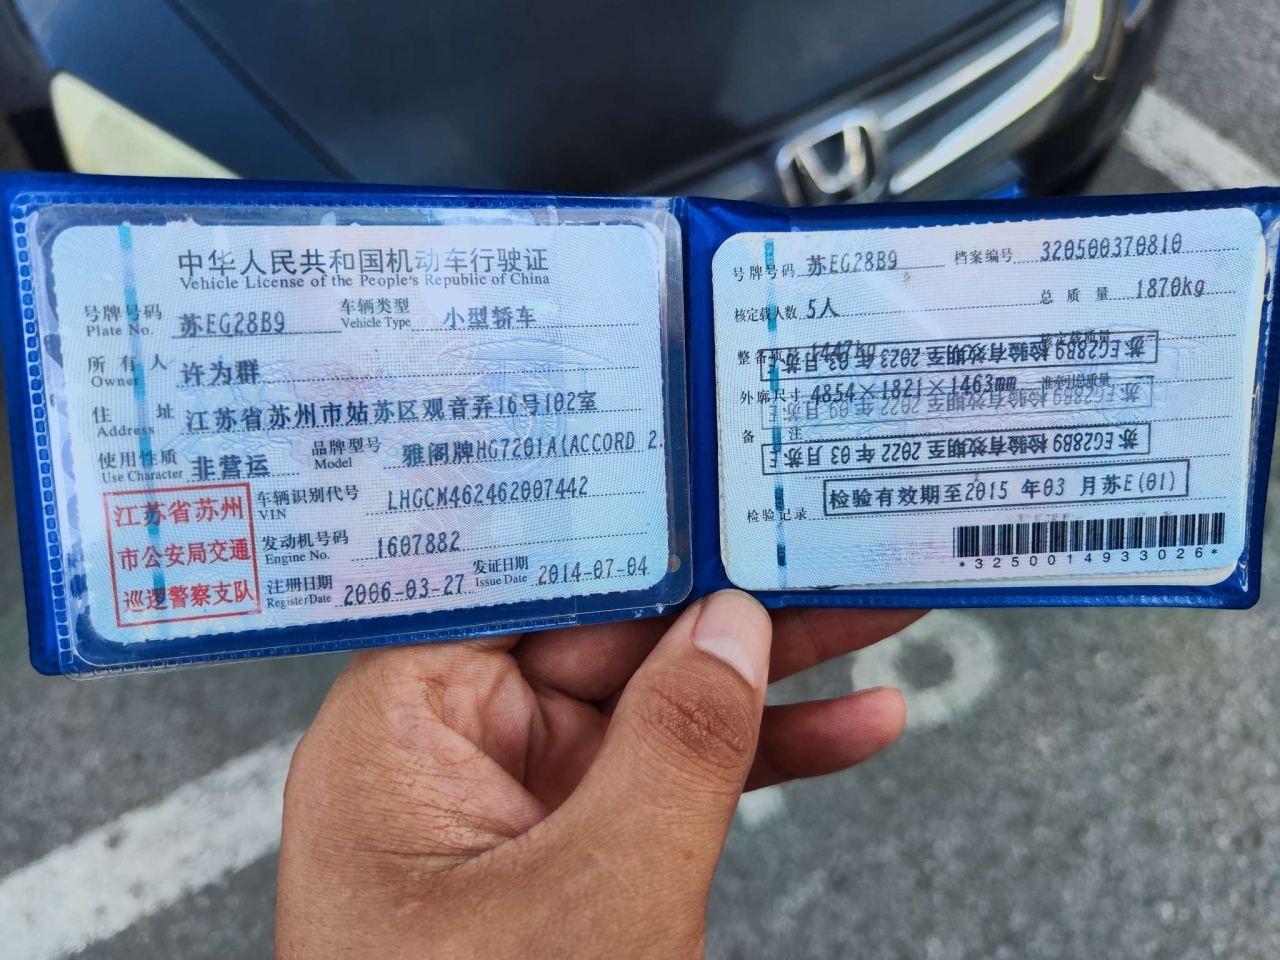 中华人民共和国机动车行驶证
Vehicle License of the People's Republic of China
号牌号码 苏EG28B9 车辆类型 小型轿车
Plate No. Vehicle Type
所有人 许为群
Owner
住址 江苏省苏州市姑苏区观音弄16号102室
Address
使用性质 非营运 品牌型号 雅阁牌HG7201A(ACCORD 2.
Use Character Model
江苏省苏州
市公安局交通
巡逻警察支队
车辆识别代号 LHGCM462462007442
VIN
发动机号码 1607882
Engine No.
注册日期 2006-03-27 发证日期 2014-07-04
Register Date Issue Date
号牌号码 苏EG28B9 档案编号 320500370810
核定载人数 5人 总质量 1870kg
整备质量 1447kg 核定载质量
苏EG28B9 检验有效期至2022年03月苏E
外廓尺寸 4854×1821×1463mm 准牵引总质量
苏EG28B9 检验有效期至2022年09月苏E
备注
苏EG28B9 检验有效期至2022年03月苏E
检验有效期至2015年03月苏E(01)
检验记录
*3250014933026*